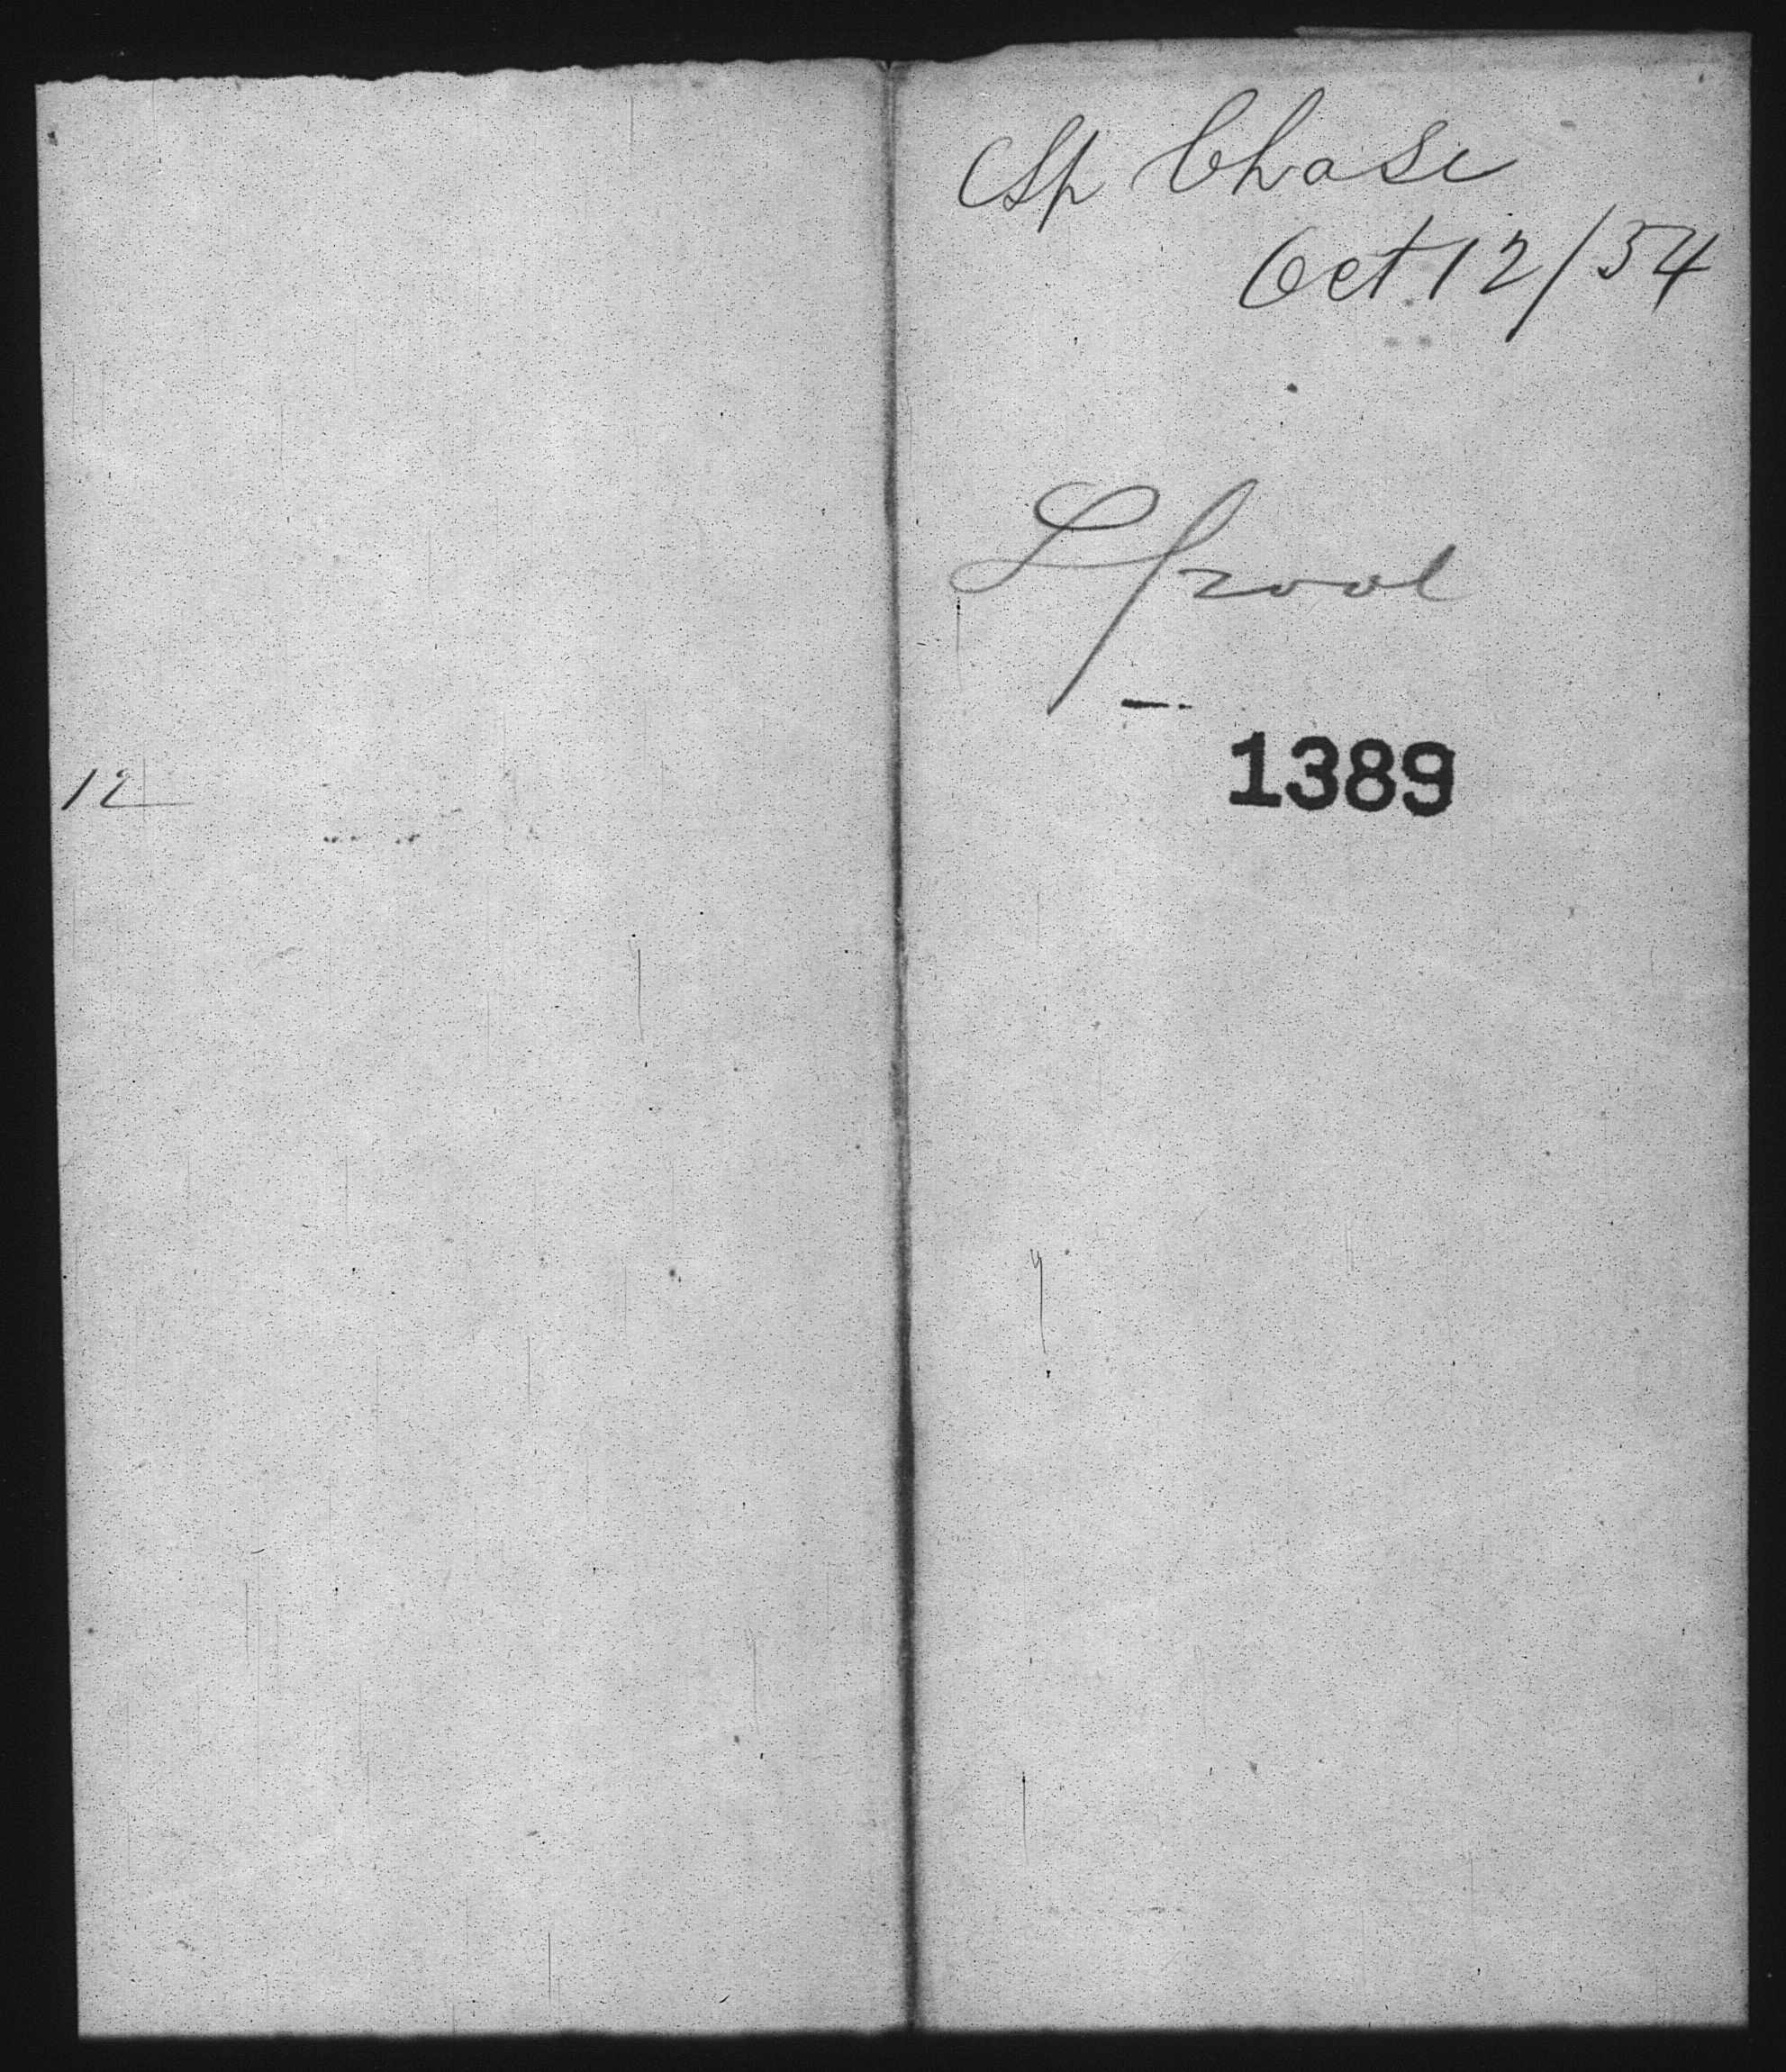 12
Sp Chase
Oct 12/54
Lpool
1389